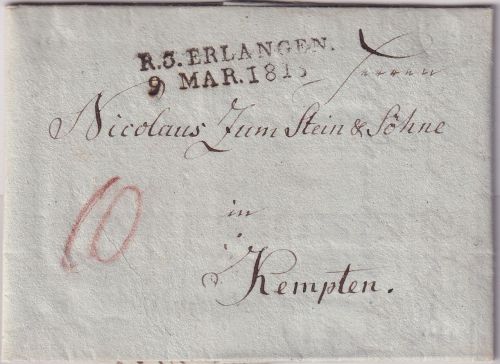 R.3.ERLANGEN.
9 MAR.181
Herren
Nicolaus Zum Stein & Söhne
10
in
Kempten.